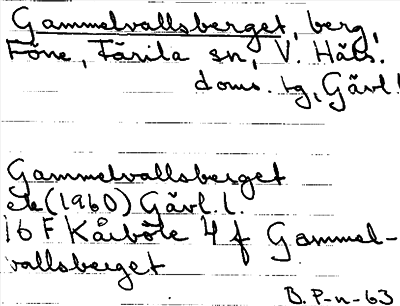 Gammelvallsberget, berg,
Föne, Färila sn, V. Häls.
doms. tg, Gävl.l
Gammelvallsberget
ek (1960) Gävl. l.
16 F Kårböle 4 f Gammel-
vallsberget
B. P-n-63